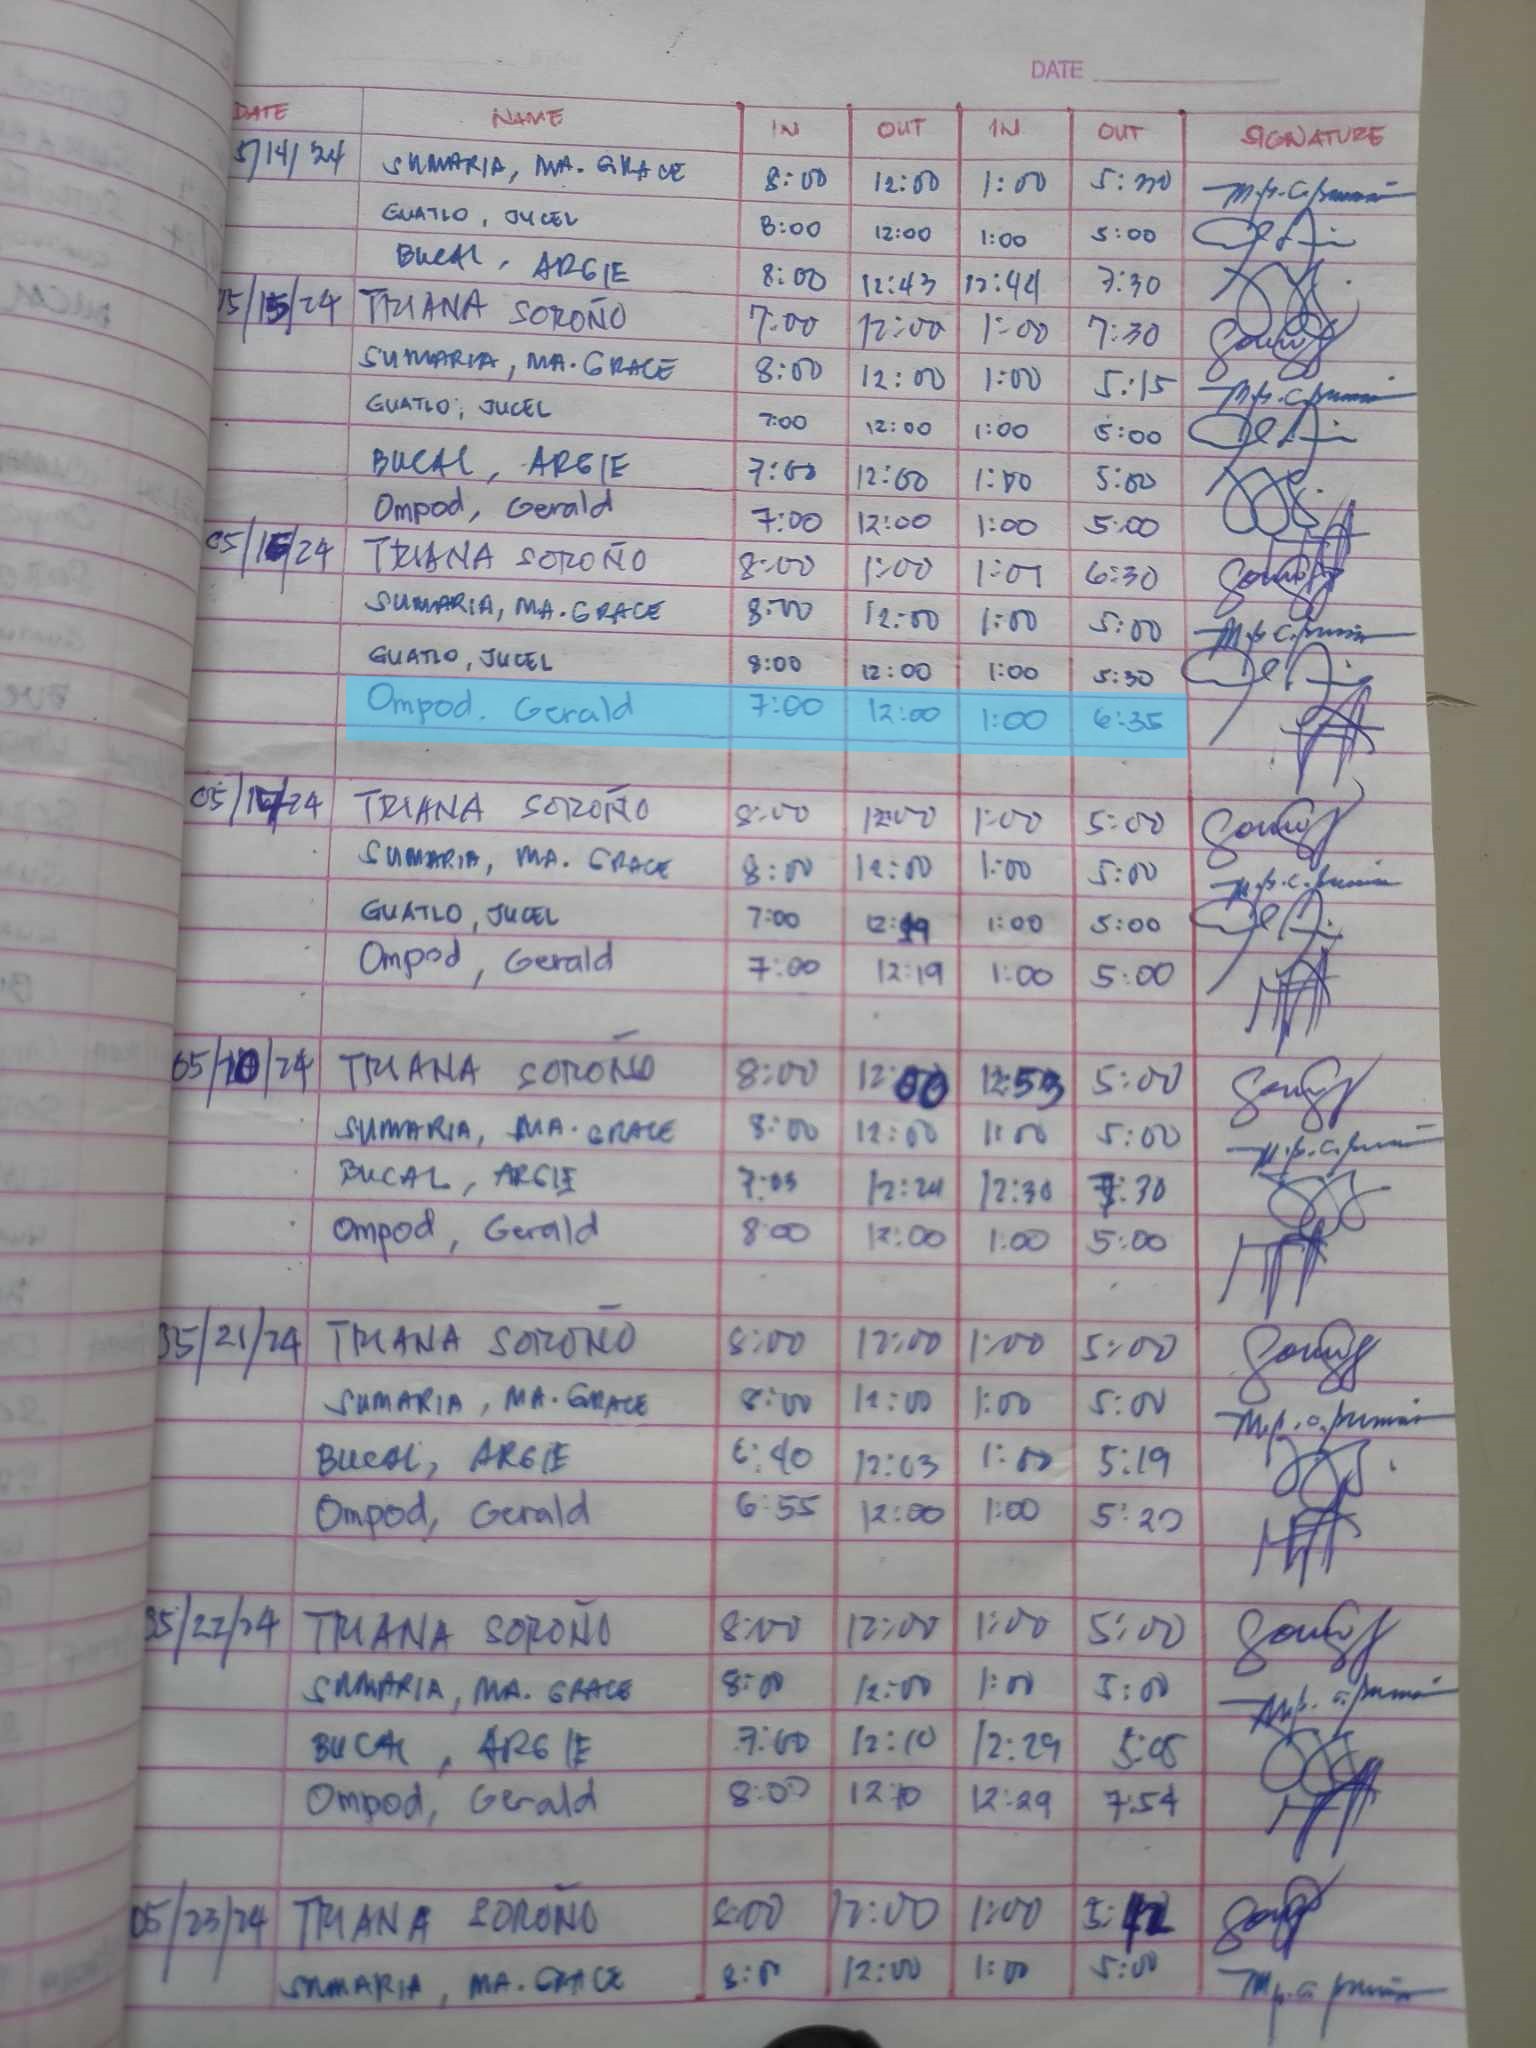 DATE
DATE NAME IN OUT IN OUT SIGNATURE
5/14/24 SUMARIA, MA. GRACE 8:00 12:00 1:00 5:30
GUATLO, JUCEL 8:00 12:00 1:00 5:00
BUCAL, ARGIE 8:00 12:43 12:44 7:30
05/15/24 TRIANA SOROÑO 7:00 12:00 1:00 7:30
SUMARIA, MA. GRACE 8:00 12:00 1:00 5:15
GUATLO, JUCEL 7:00 12:00 1:00 5:00
BUCAL, ARGIE 7:00 12:00 1:00 5:00
Ompod, Gerald 7:00 12:00 1:00 5:00
05/16/24 TRIANA SOROÑO 8:00 1:00 1:01 6:30
SUMARIA, MA. GRACE 8:00 12:00 1:00 5:00
GUATLO, JUCEL 8:00 12:00 1:00 5:30
Ompod. Gerald 7:00 12:00 1:00 6:35
05/17/24 TRIANA SOROÑO 8:00 12:00 1:00 5:00
SUMARIA, MA. GRACE 8:00 12:00 1:00 5:00
GUATLO, JUCEL 7:00 12:19 1:00 5:00
Ompod, Gerald 7:00 12:19 1:00 5:00
TRIANA SOROÑO 8:00 12:00 12:53 5:00
SUMARIA, MA. GRACE 8:00 12:00 1:00 5:00
BUCAL, ARGIE 7:03 12:24 12:30 7:30
Ompod, Gerald 8:00 12:00 1:00 5:00
05/21/24 TRIANA SOROÑO 8:00 12:00 1:00 5:00
SUMARIA, MA. GRACE 8:00 12:00 1:00 5:00
BUCAL, ARGIE 6:40 12:03 1:00 5:19
Ompod, Gerald 6:55 12:00 1:00 5:20
05/22/24 TRIANA SOROÑO 8:00 12:00 1:00 5:00
SUMARIA, MA. GRACE 8:00 12:00 1:00 5:00
BUCAL, ARGIE 7:00 12:10 12:29 5:05
Ompod, Gerald 8:00 12:10 12:29 7:54
05/23/24 TRIANA SOROÑO 8:00 12:00 1:00 5:12
SUMARIA, MA. GRACE 8:00 12:00 1:00 5:00